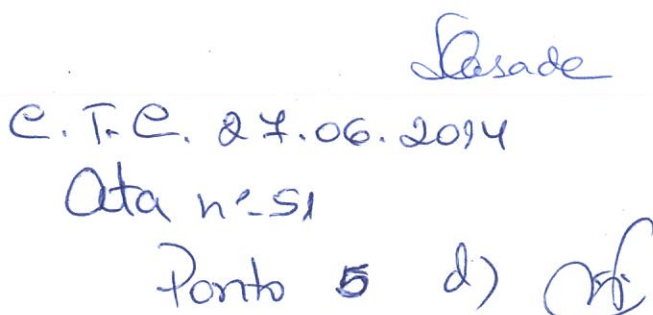 C.T.C. 27.06.2014
Ata nº-51
Ponto 5 d)